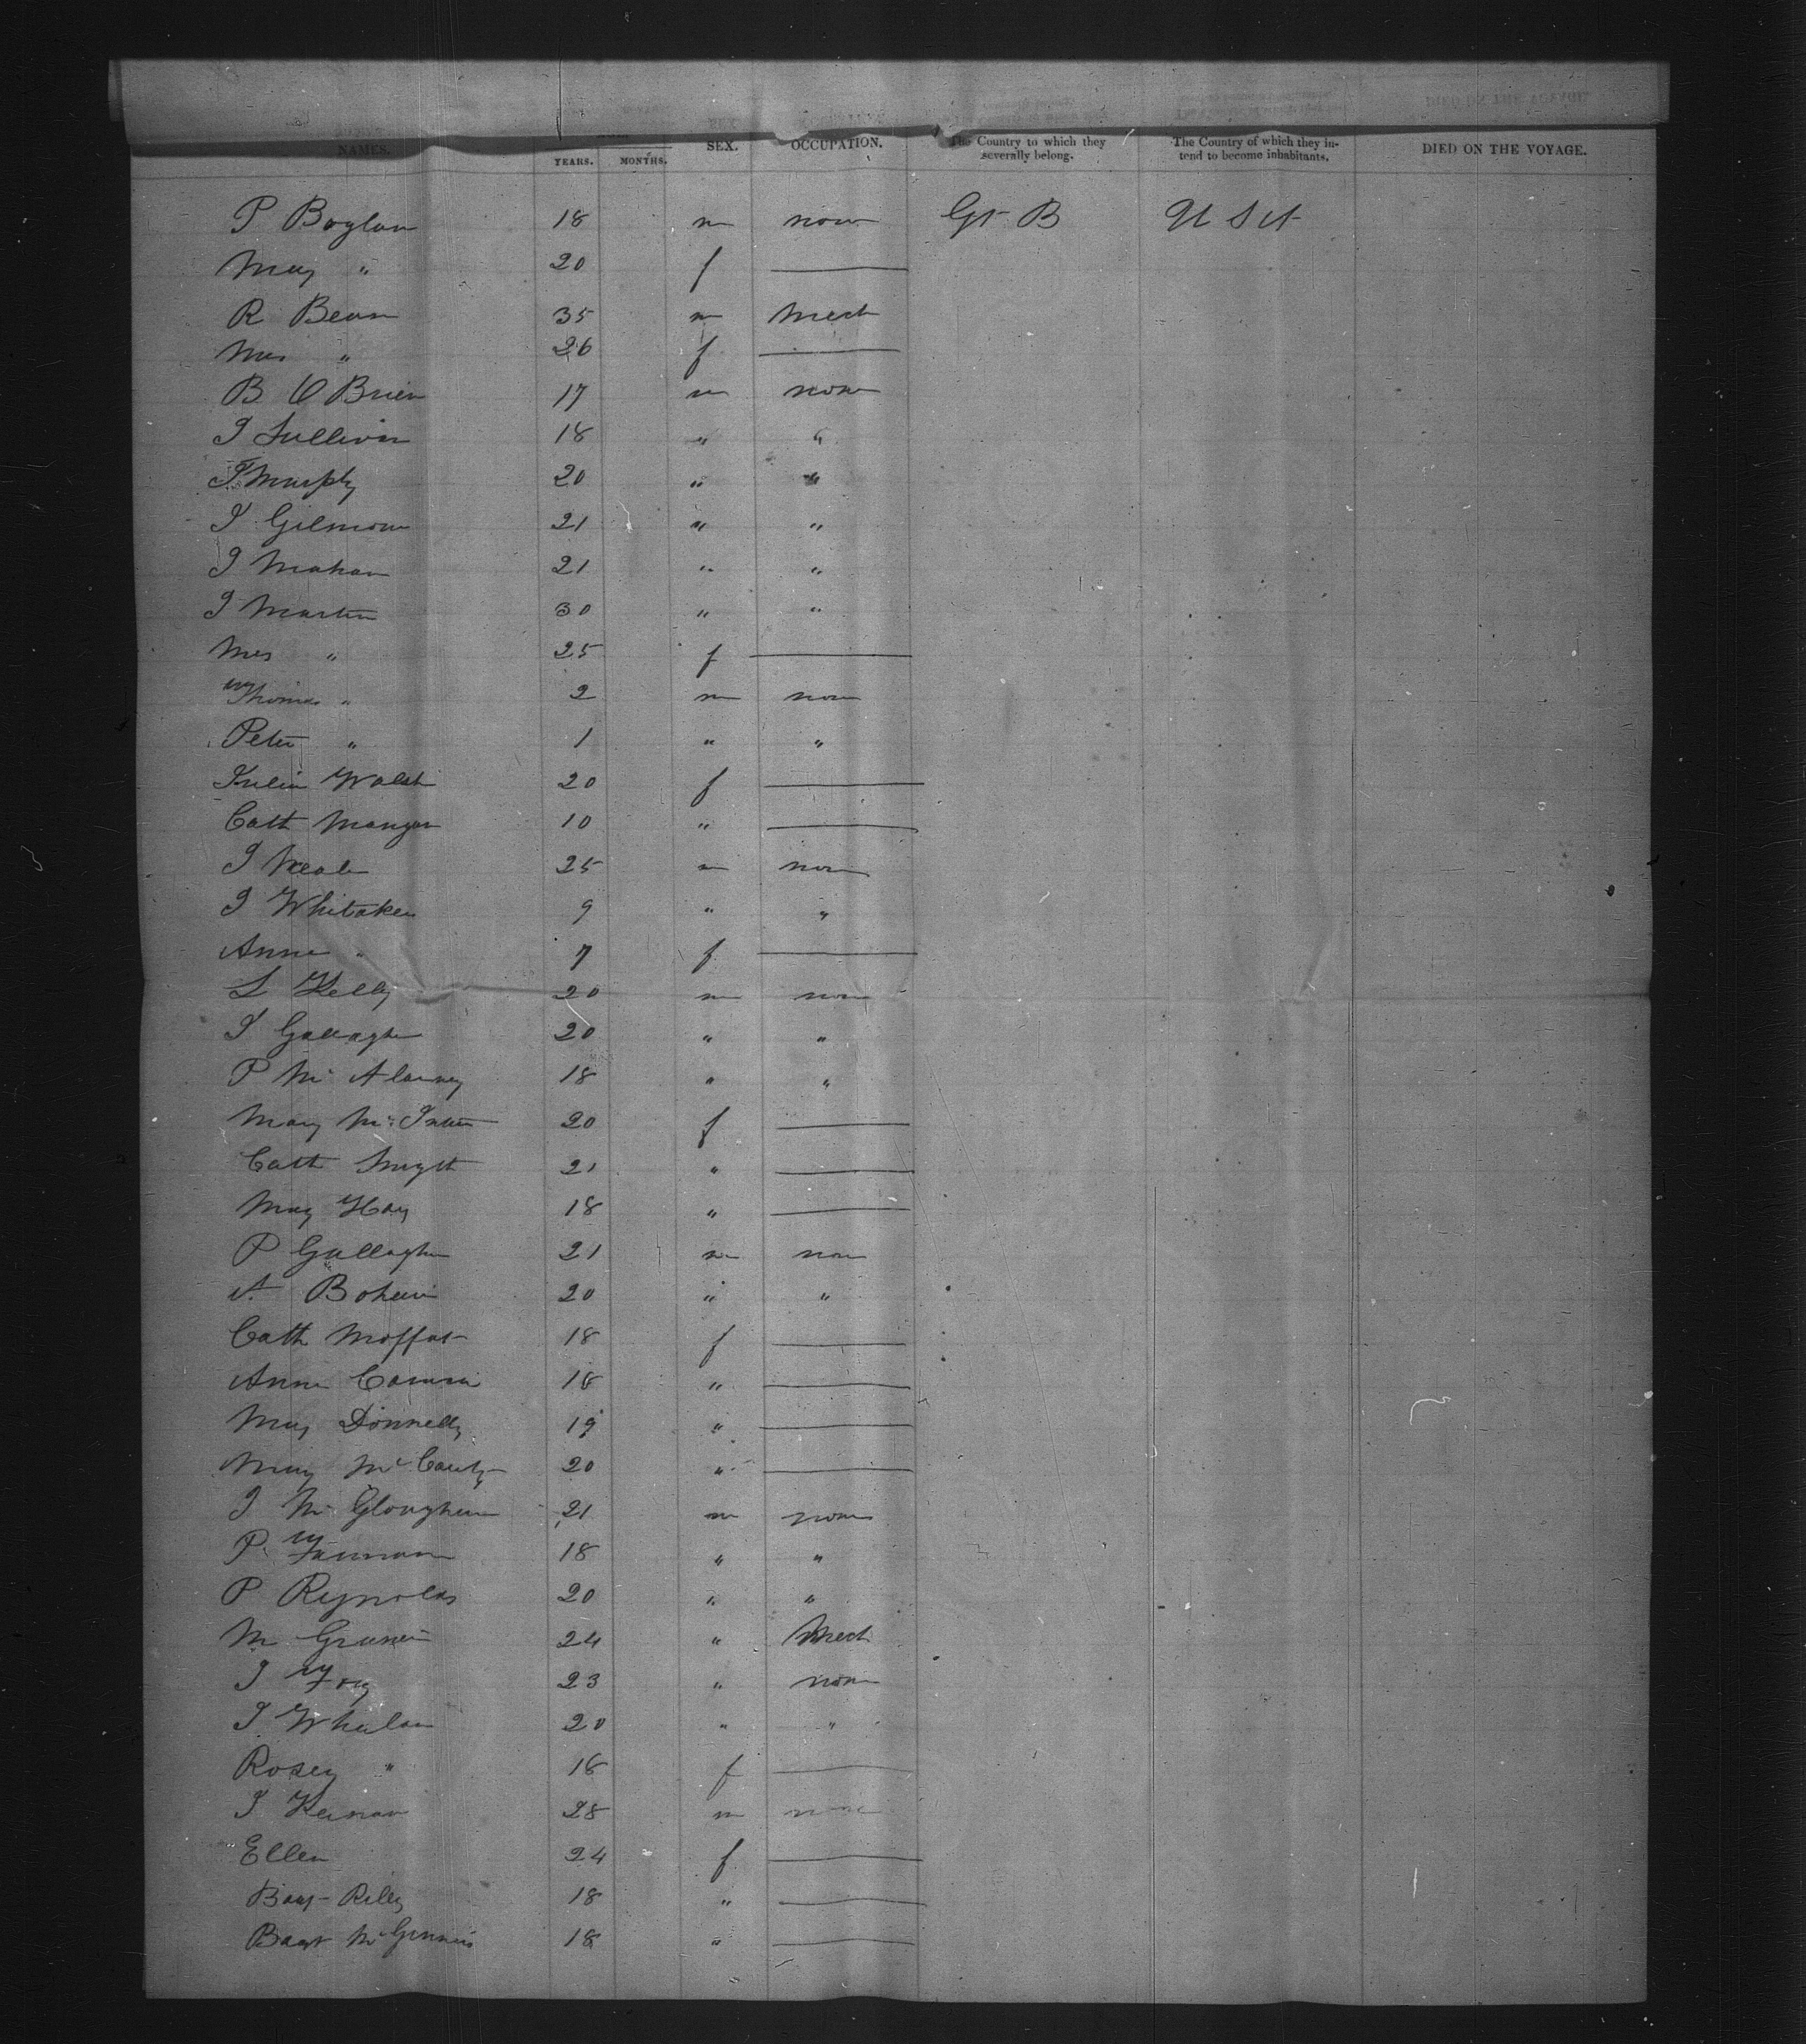 NAMES. YEARS. MONTHS. SEX. OCCUPATION. The Country to which they severally belong. The Country of which they intend to become inhabitants. DIED ON THE VOYAGE.
P Boylan 18 m none Gt B U S A
Mary " 20 f
R Bean 35 m Mech
Mrs " 26 f
B O Brien 17 m none
J Sullivan 18 " "
T Murphy 20 " "
J Gilmore 21 " "
J Mahan 21 " "
J Martin 30 " "
Mrs " 25 f
Thomas " 2 m none
Peter " 1 " "
Julia Walsh 20 f
Cath Mangan 10 "
J 25 m none
J Whitaker 9 " "
Anne " 7 f
L Kelly 20 m none
J Gallagher 20 " "
P Mc 18 " "
Mary Mc 20 f
Cath Smyth 21 "
Mary Hay 18 "
P Gallagher 21 m none
A 20 " "
Cath Moffat 18 f
Anne "
Mary Donnelly 19 "
Mary Mc 20 "
J Mc 21 m none
P 18 " "
P Reynolds 20 " "
M 24 " Mech
J Foy 23 " none
J Whelan 20 " "
Rosey " f
J 28 m none
Ellen 24 f
Riley 18 "
McGinnis 18 "